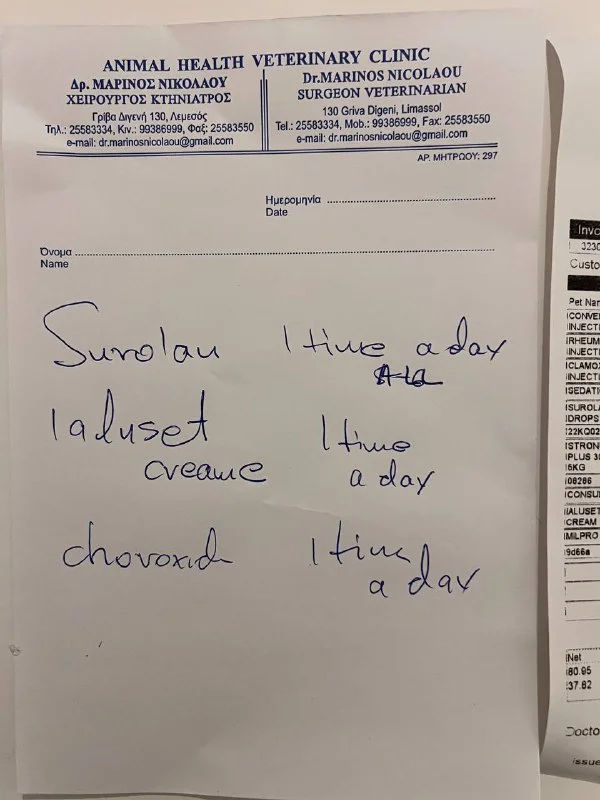 ANIMAL HEALTH VETERINARY CLINIC
Δρ. ΜΑΡΙΝΟΣ ΝΙΚΟΛΑΟΥ
ΧΕΙΡΟΥΡΓΟΣ ΚΤΗΝΙΑΤΡΟΣ
Γρίβα Διγενή 130, Λεμεσός
Τηλ.: 25583334, Κιν.: 99386999, Φαξ: 25583550
e-mail: dr.marinosnicolaou@gmail.com
Dr.MARINOS NICOLAOU
SURGEON VETERINARIAN
130 Griva Digeni, Limassol
Tel.: 25583334, Mob.: 99386999, Fax: 25583550
e-mail: dr.marinosnicolaou@gmail.com
ΑΡ. ΜΗΤΡΩΟΥ: 297
Ημερομηνία
Date
Όνομα
Name
Surolan 1 time a day
Ialuset 1 time
creame a day
1 time
a day
Invo
3230
Custo
Pet Nar
CONVE
INJECTI
RHEUM
INJECTI
CLAMOX
INJECTI
SEDATI
SUROLA
DROPS
22KQ02
STRON
PLUS 3
6KG
08286
CONSU
IALUSET
CREAM
MILPRO
9d66a
Net
80.95
37.82
Docto
issue